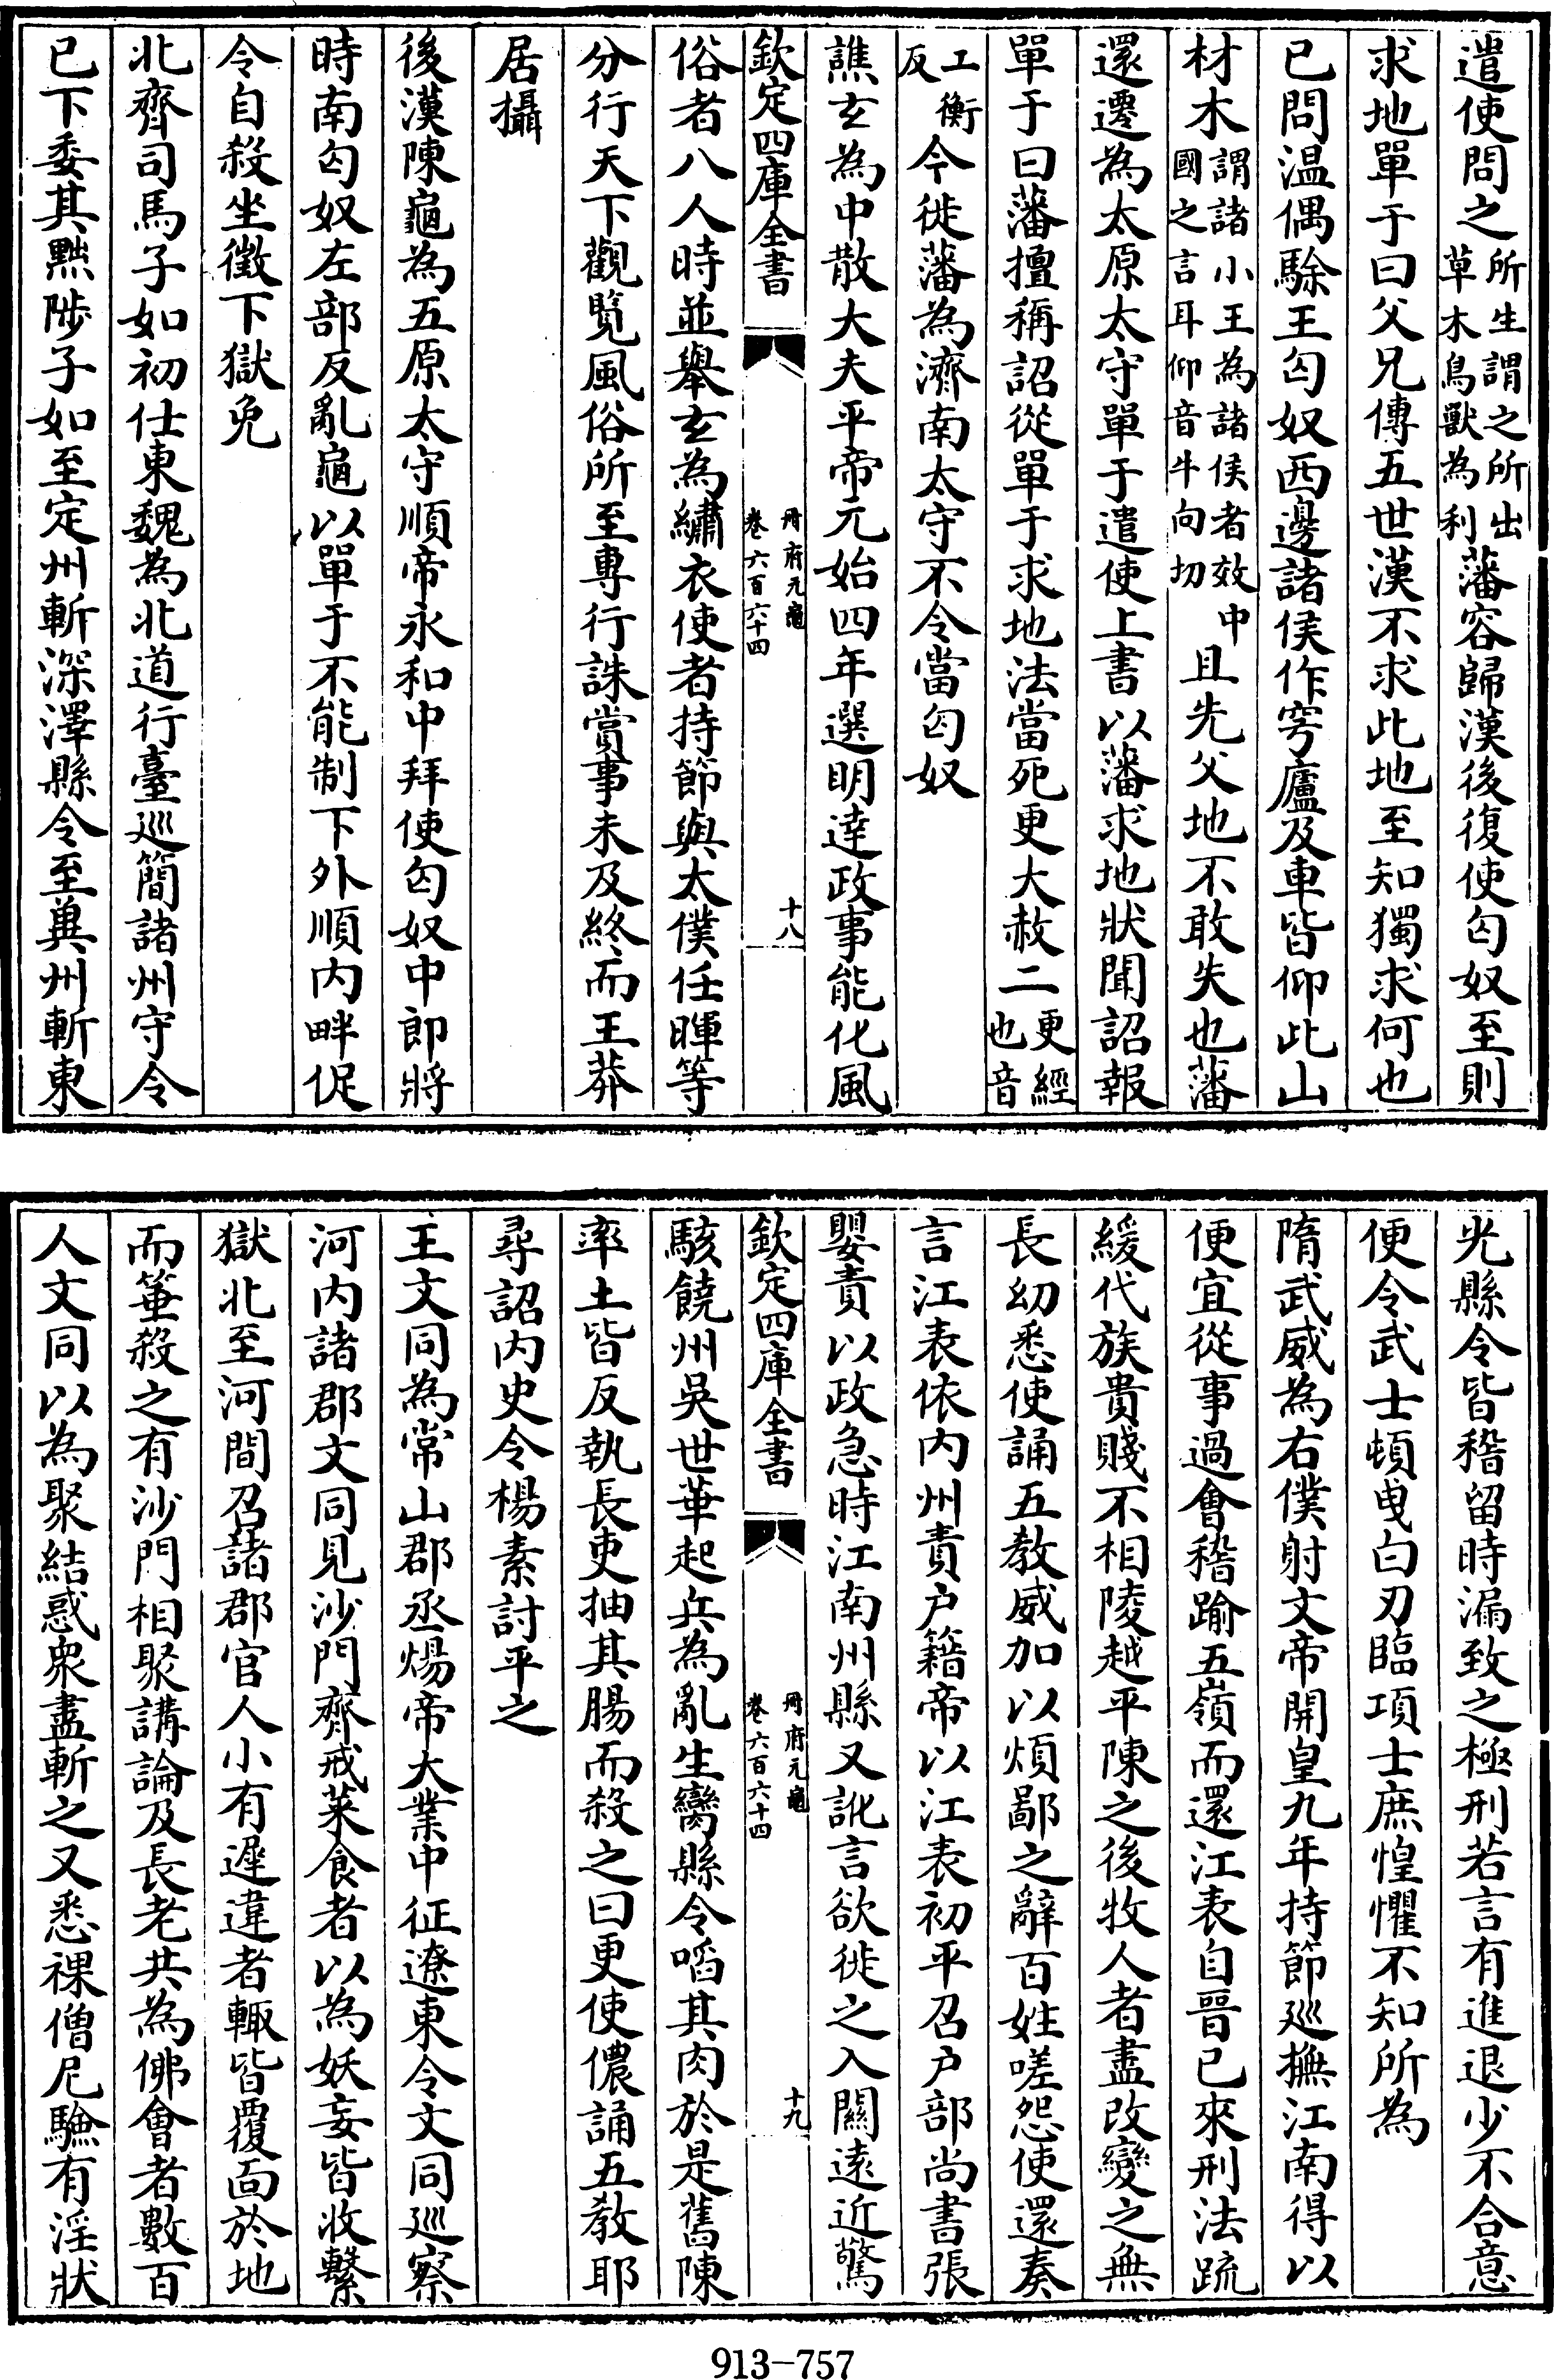 遣使問之所生謂之所出草木鳥獸為利藩容歸漢後復使匈奴至則
求地單于曰父兄傳五世漢不求此地至知獨求何也
已問温偶駼王匈奴西邊諸侯作穹廬及車皆仰此山
材木謂諸小王為諸侯者效中國之言耳仰音牛向切且先父地不敢失也藩
還遷為太原太守單于遣使上書以藩求地狀聞詔報
單于曰藩擅稱詔從單于求地法當死更大赦二更經也音
工衡反今徙藩為濟南太守不令當匈奴
譙玄為中散大夫平帝元始四年選明達政事能化風
欽定四庫全書
册府元龜
卷六百六十四
十八
俗者八人時並舉玄為繡衣使者持節與太僕任暉等
分行天下觀覽風俗所至專行誅賞事未及終而王莽
居攝
後漢陳龜為五原太守順帝永和中拜使匈奴中郎將
時南匈奴左部反亂龜以單于不能制下外順内畔促
令自殺坐徵下獄免
北齊司馬子如初仕東魏為北道行臺巡簡諸州守令
已下委其黜陟子如至定州斬深澤縣令至冀州斬東
光縣令皆稽留時漏致之極刑若言有進退少不合意
便令武士頓曳白刃臨項士庶惶懼不知所為
隋武威為右僕射文帝開皇九年持節巡撫江南得以
便宜從事過會稽踰五嶺而還江表自晉已來刑法疏
緩代族貴賤不相陵越平陳之後牧人者盡改變之無
長幼悉使誦五教威加以煩鄙之辭百姓嗟怨使還奏
言江表依内州責户籍帝以江表初平召户部尚書張
嬰責以政急時江南州縣又訛言欲徙之入關遠近驚
欽定四庫全書
册府元龜
卷六百六十四
十九
駭饒州吳世華起兵為亂生臠縣令啗其肉於是舊陳
率土皆反執長吏抽其腸而殺之曰更使儂誦五教耶
尋詔内史令楊素討平之
王文同為常山郡丞煬帝大業中征遼東令文同巡察
河内諸郡文同見沙門齋戒菜食者以為妖妄皆收繫
獄北至河間召諸郡官人小有遲違者輒皆覆面於地
而箠殺之有沙門相聚講論及長老共為佛會者數百
人文同以為聚結惑衆盡斬之又悉裸僧尼驗有淫狀
913-757